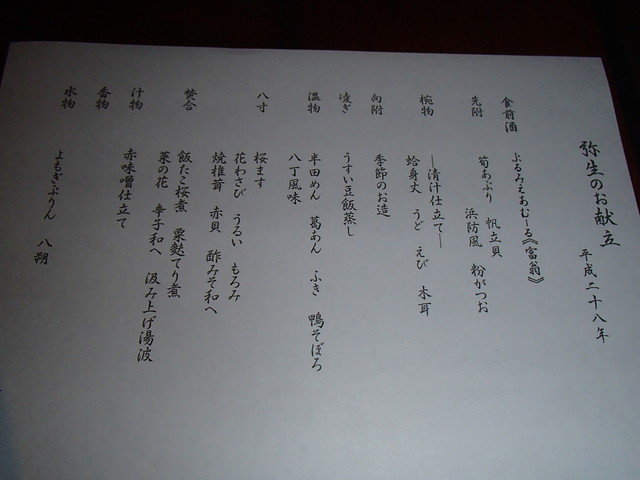 弥生のお献立
平成二十八年
食前酒 ぷるみえあむーる《富翁》
先附 筍あぶり 帆立貝
浜防風 粉がつお
椀物 ―清汁仕立て―
蛤身丈 うど えび 木耳
向附 季節のお造
凌ぎ うすい豆飯蒸し
温物 半田めん 葛あん ふき 鴨そぼろ
八丁風味
八寸 桜ます
花わさび うるい もろみ
焼椎茸 赤貝 酢みそ和へ
焚合 飯たこ桜煮 粟麩てり煮
菜の花 辛子和へ 汲み上げ湯波
汁物 赤味噌仕立て
香物
水物 よもぎぷりん 八朔